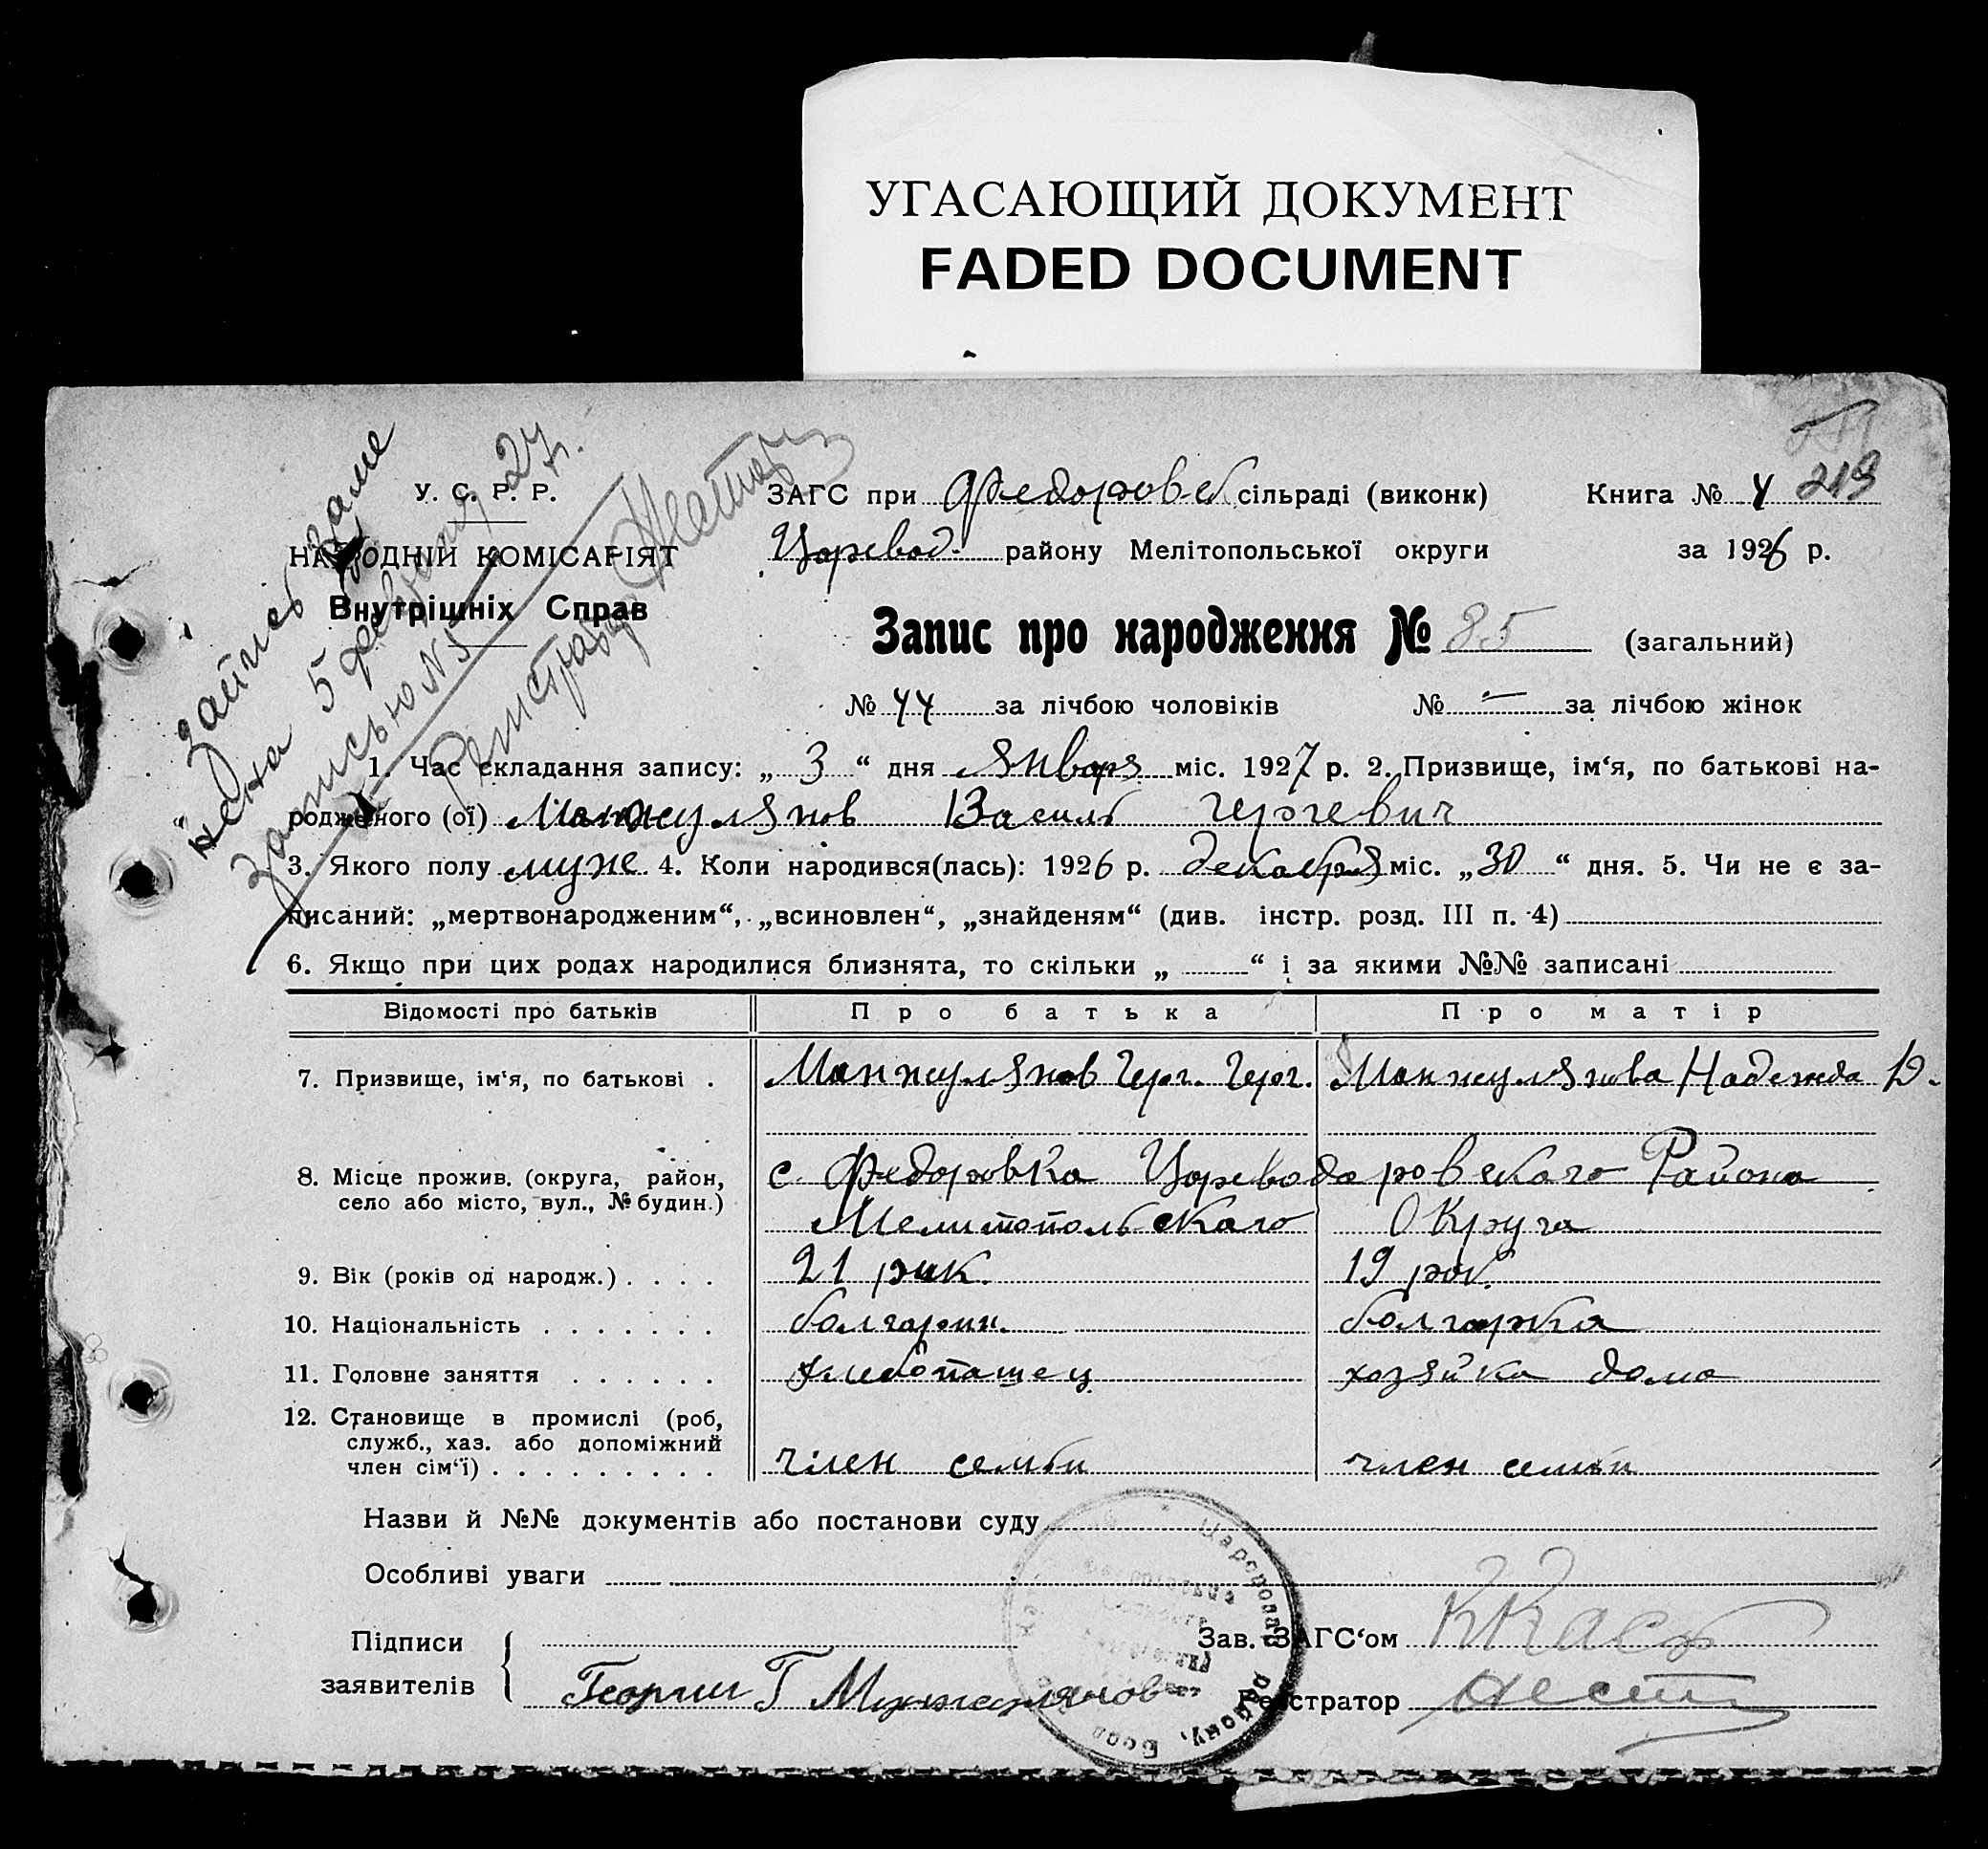 УГАСАЮЩИЙ ДОКУМЕНТ
FADED DOCUMENT
219
запись заме
нена 5 февраля 27 г.
записью N 5
Регистратор
У. С. Р. Р.
НАРОДНІЙ КОМІСАРІЯТ
Внутрішніх Справ
ЗАГС при Федоровск сільраді (виконк) Книга № 4
Царевод. району Мелітопольської округи за 1926 р.
Запис про народження № 85 (загальний)
№ 44 за лічбою чоловіків № — за лічбою жінок
1. Час складання запису: „ 3 “ дня Января міс. 1927 р. 2. Призвище, ім‘я, по батькові на-
родженого (ої) Манжулянов Василь ГерГевич
3. Якого полу муже 4. Коли народився(лась): 1926 р. декабря міс. „30 “ дня. 5. Чи не є за-
писаний: „мертвонародженим“, „всиновлен“, „знайденям“ (див. інстр. розд. III п. 4)
6. Якщо при цих родах народилися близнята, то скільки „ “ і за якими №№ записані
Відомості про батьків Про батька Про матір
7. Призвище, ім‘я, по батькові . Манжулянов Герг. Герг. Манжулянова Надежда Д.
8. Місце прожив. (округа, район, с. Федоровка Цареводаровскаго Района
село або місто, вул., № будин.) Мелитопольскаго Округа
9. Вік (років од народж.) . . . . 21 рик. 19 рок.
10. Національність . . . . . . . болгарин. болгарка
11. Головне заняття . . . . . . хлебопашец хозяйка дома
12. Становище в промислі (роб,
служб., хаз. або допоміжний
член сім‘ї) . . . . . . . . . член семьи член семьи
Назви й №№ документів або постанови суду
Особливі уваги
Підписи Зав. ЗАГС‘ом
заявителів Георгии Г Манжулянов Реєстратор